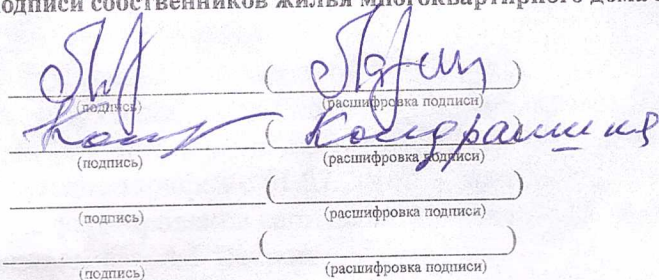 подписи собственников жилья многоквартирного дома
( )
(подпись) (расшифровка подписи)
( Кондрашина
(подпись) (расшифровка подписи)
( )
(подпись) (расшифровка подписи)
( )
(подпись) (расшифровка подписи)